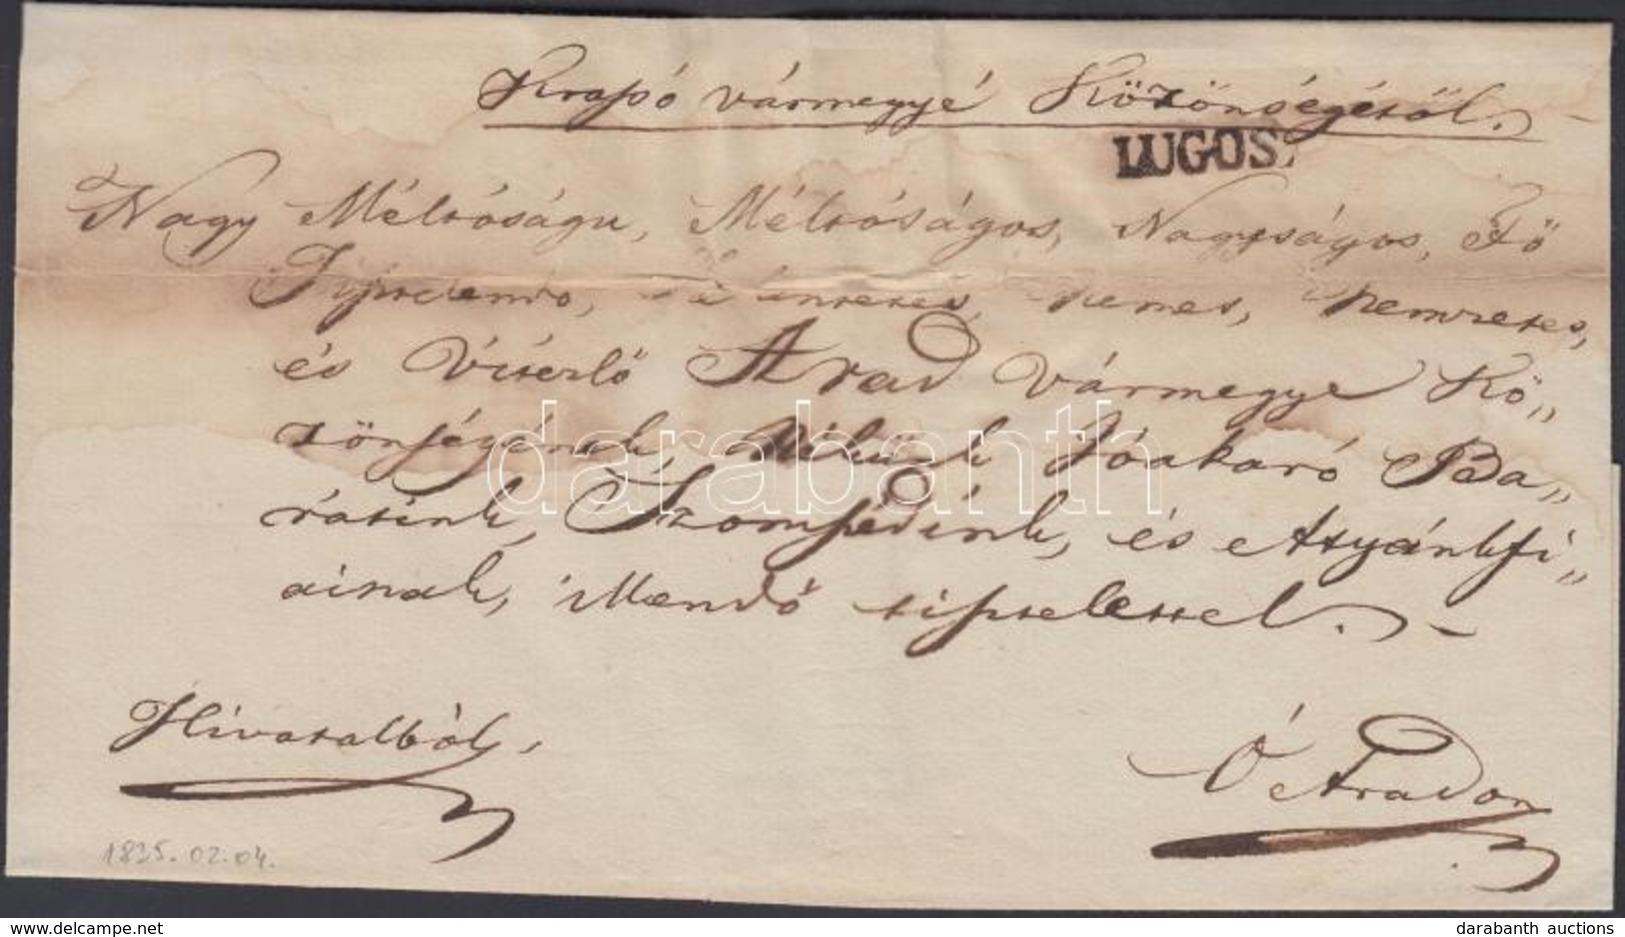 Krassó vármegye Közönségétől.
LUGOS.
Nagy Méltóságu, Méltóságos, Nagyságos, Fő
Tisztelendő, Tekintetes, Nemes, Nemzetes,
és Vitézlő Arad vármegye Kö„
zönségének, Nékünk Jóakaró Ba„
rátink, Szomszédink, és Atyánkfi„
ainak, Illendő tisztelettel.
Hivatalból,
Ó Aradon
1835. 02. 04.
darabanth
delcampe.net
darabanth auctions